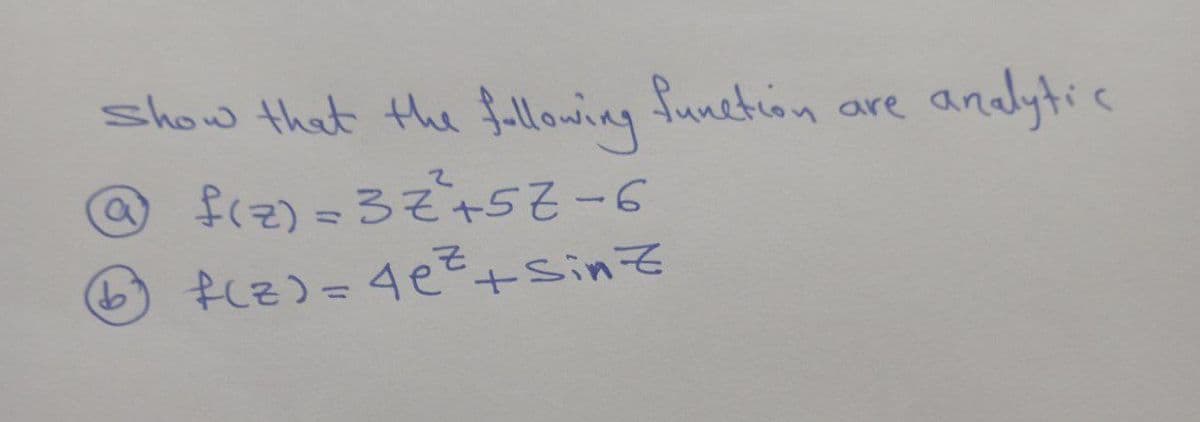 show that the following function are analytic
(a) f(z) = 3z²+5z-6
(b) f(z) = 4e^z + sin z